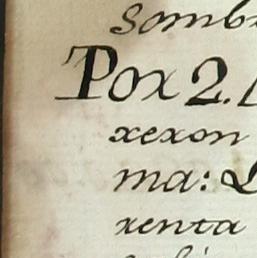 sombr
Pox 2.
xexon
ma:
xenta